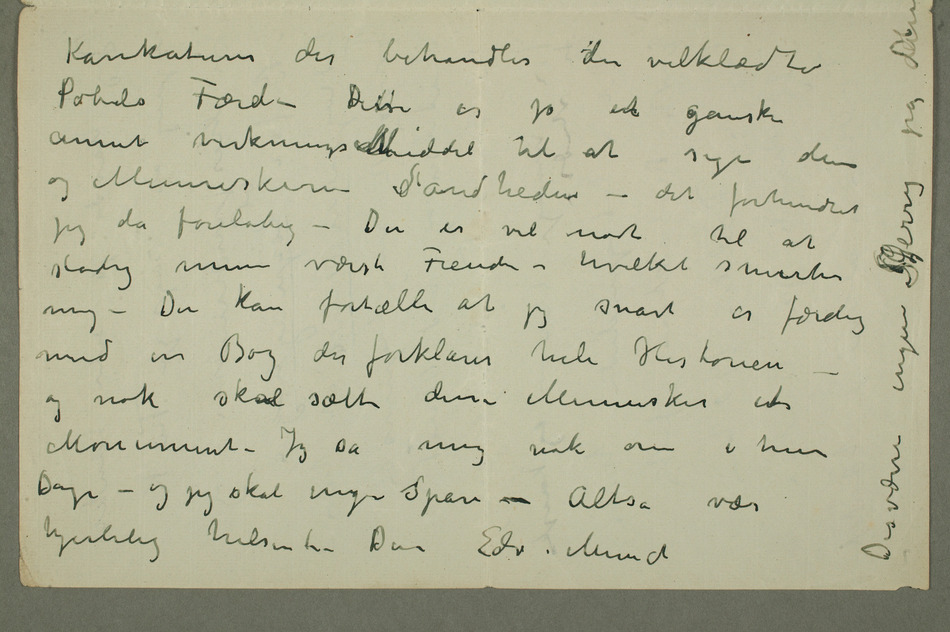 Karikaturer der behandler den velklædte
Pøbels Færd – Disse er jo et ganske
annet virkningsMiddel til at sige dem
og Menneskene Sandheden – det forhindret
jeg da foreløbig – Du er vel nødt til at
stadig min værste Fiende – hvilket smerter
mig – Du kan fortælle at jeg snart er færdig
med en Bog der forklarer hele Historien –
og nok skal sætte disse Mennesker et
Monument – Jeg så mig nok om i hine
Dage – og jeg skal ingen spare – Altså vær
hjertelig hilset fra Din Edv. Munch
Desværre ingen Sherry jeg